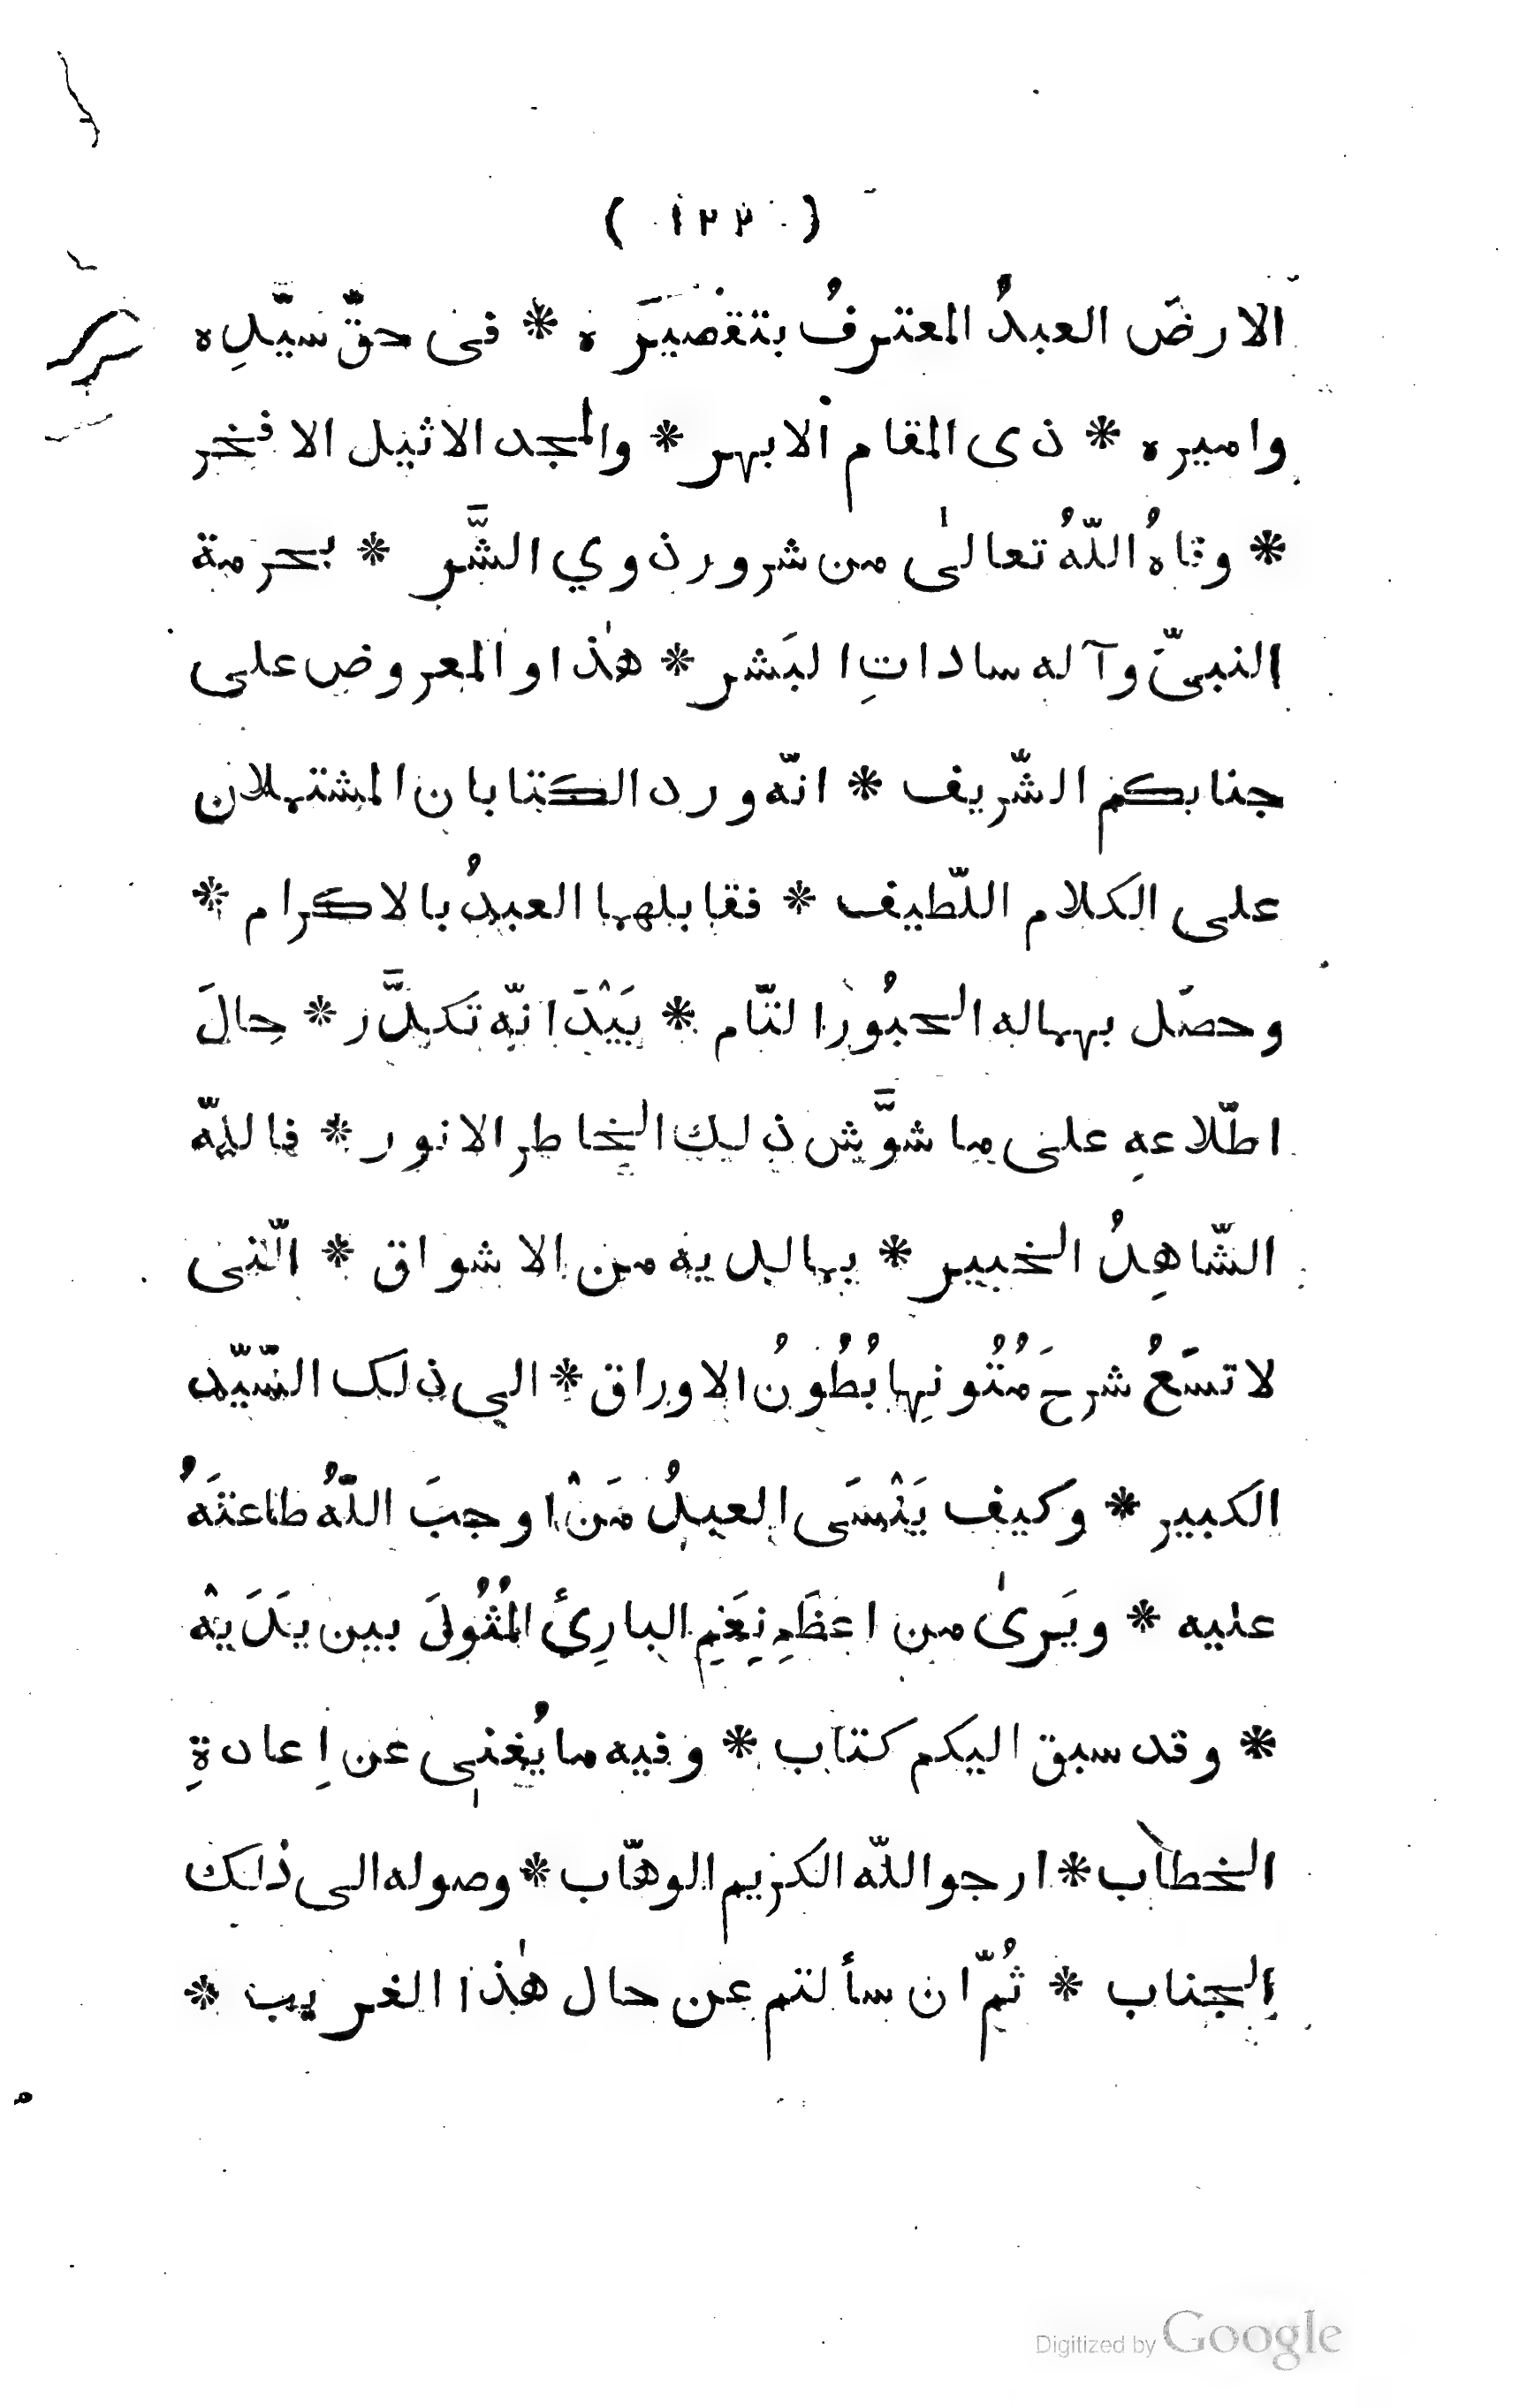 ( ١٢٢ )
الارضَ العبدُ المعترفُ بتقصيرَه * فى حقّ سيّدِه
واميره * ذى المقام الابهر * والمجد الاثيل الافخر
* وقاهُ اللّهُ تعالىٰ من شرور ذوي الشَّر * بحرمة
النبىّ وآله ساداتِ البَشر * هٰذا والمعروض على
جنابكم الشّريف * انّه ورد الكتابان المشتملان
على الكلام اللّطيف * فقابلهما العبدُ بالاكرام *
وحصَل بهما له الحبُورُ التّام * بَيْدَ انّه تَكدَّر * حِالَ
اطّلاعهِ على ما شوَّش ذلك الخاطر الانور * فاللّه
الشّاهِدُ الخبير * بما لديه من الاشواق * الّتى
لا تسَعُ شرحَ مُتُونِها بُطُونُ الاوراق * الى ذلك السّيّد
الكبير * وكيف يَنْسَى العبدُ مَنْ اوجبَ اللّهُ طاعتَهُ
عليه * ويَرىٰ من اعظَمِ نِعَمِ البارِئُ المُثُولَ بين يَدَيهْ
* وقد سبق اليكم كتاب * وفيه ما يُغنىٖ عن اِعادةِ
الخطاب * ارجو اللّه الكريم الوهّاب * وصوله الى ذلك
الجناب * ثُمّ ان سألتم عن حال هٰذا الغريب *
Digitized by Google